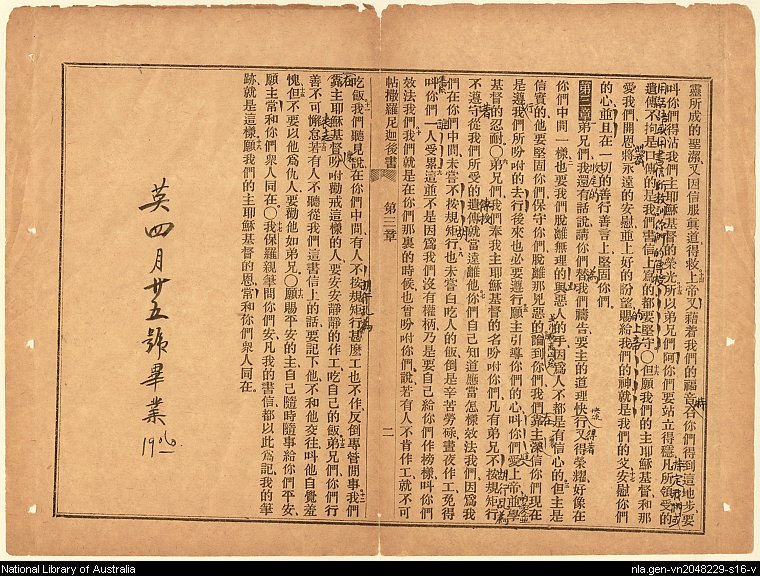 靈所成的聖潔又因信服眞道得救上帝又藉着我們的福音召你們得到這地步要
叫你們得沾我們主耶穌基督的榮光所以弟兄們阿你們要站立得穩凡所領受的
遺傳不拘是口傳的是我們書信上寫的都要堅守〇但願我們的主耶穌基督和那
愛我們開恩將永遠的安慰並上好的盼望賜給我們的神就是我們的父安慰你們
的心並且在一切的善行善言上堅固你們
第三章弟兄們我還有話說請你們替我們禱告要主的道理快行又得榮耀好像在
你們中間一樣也要我們脫離無理的與惡人的手因爲人不都是有信心的但主是
信實的他要堅固你們保守你們脫離那兇惡的論到你們我們靠主深信你們現在
是遵我們所吩咐的去行後來也必要遵行願主引導你們的心叫你們愛上帝並學
基督的忍耐〇弟兄們我們奉我主耶穌基督的名吩咐你們凡有弟兄不按規矩行
不遵守從我們所受的遺傳就當遠離他你們自己知道應當怎樣效法我們因爲我
們在你們中間未嘗不按規矩行也未嘗白吃人的飯倒是辛苦勞碌晝夜作工免得
叫你們一人受累這並不是因爲我們沒有權柄乃是要自己給你們作榜樣叫你們
效法我們我們就是在你們那裏的時候也曾吩咐你們說若有人不肯作工就不可
帖撒羅尼迦後書 第三章 二
吃飯我們聽見說在你們中間有人不按規矩行甚麼工也不作反倒專管閒事我們
靠主耶穌基督吩咐勸戒這樣的人要安安靜靜的作工吃自己的飯弟兄們你們行
善不可懈怠若有人不聽從我們這書信上的話要記下他不和他交往叫他自覺羞
愧但不要以他爲仇人要勸他如弟兄〇願賜平安的主自己隨時隨事給你們平安
願主常和你們衆人同在〇我保羅親筆問你們安凡我的書信都以此爲記我的筆
跡就是這樣願我們的主耶穌基督的恩常和你們衆人同在
英四月廿五號畢業